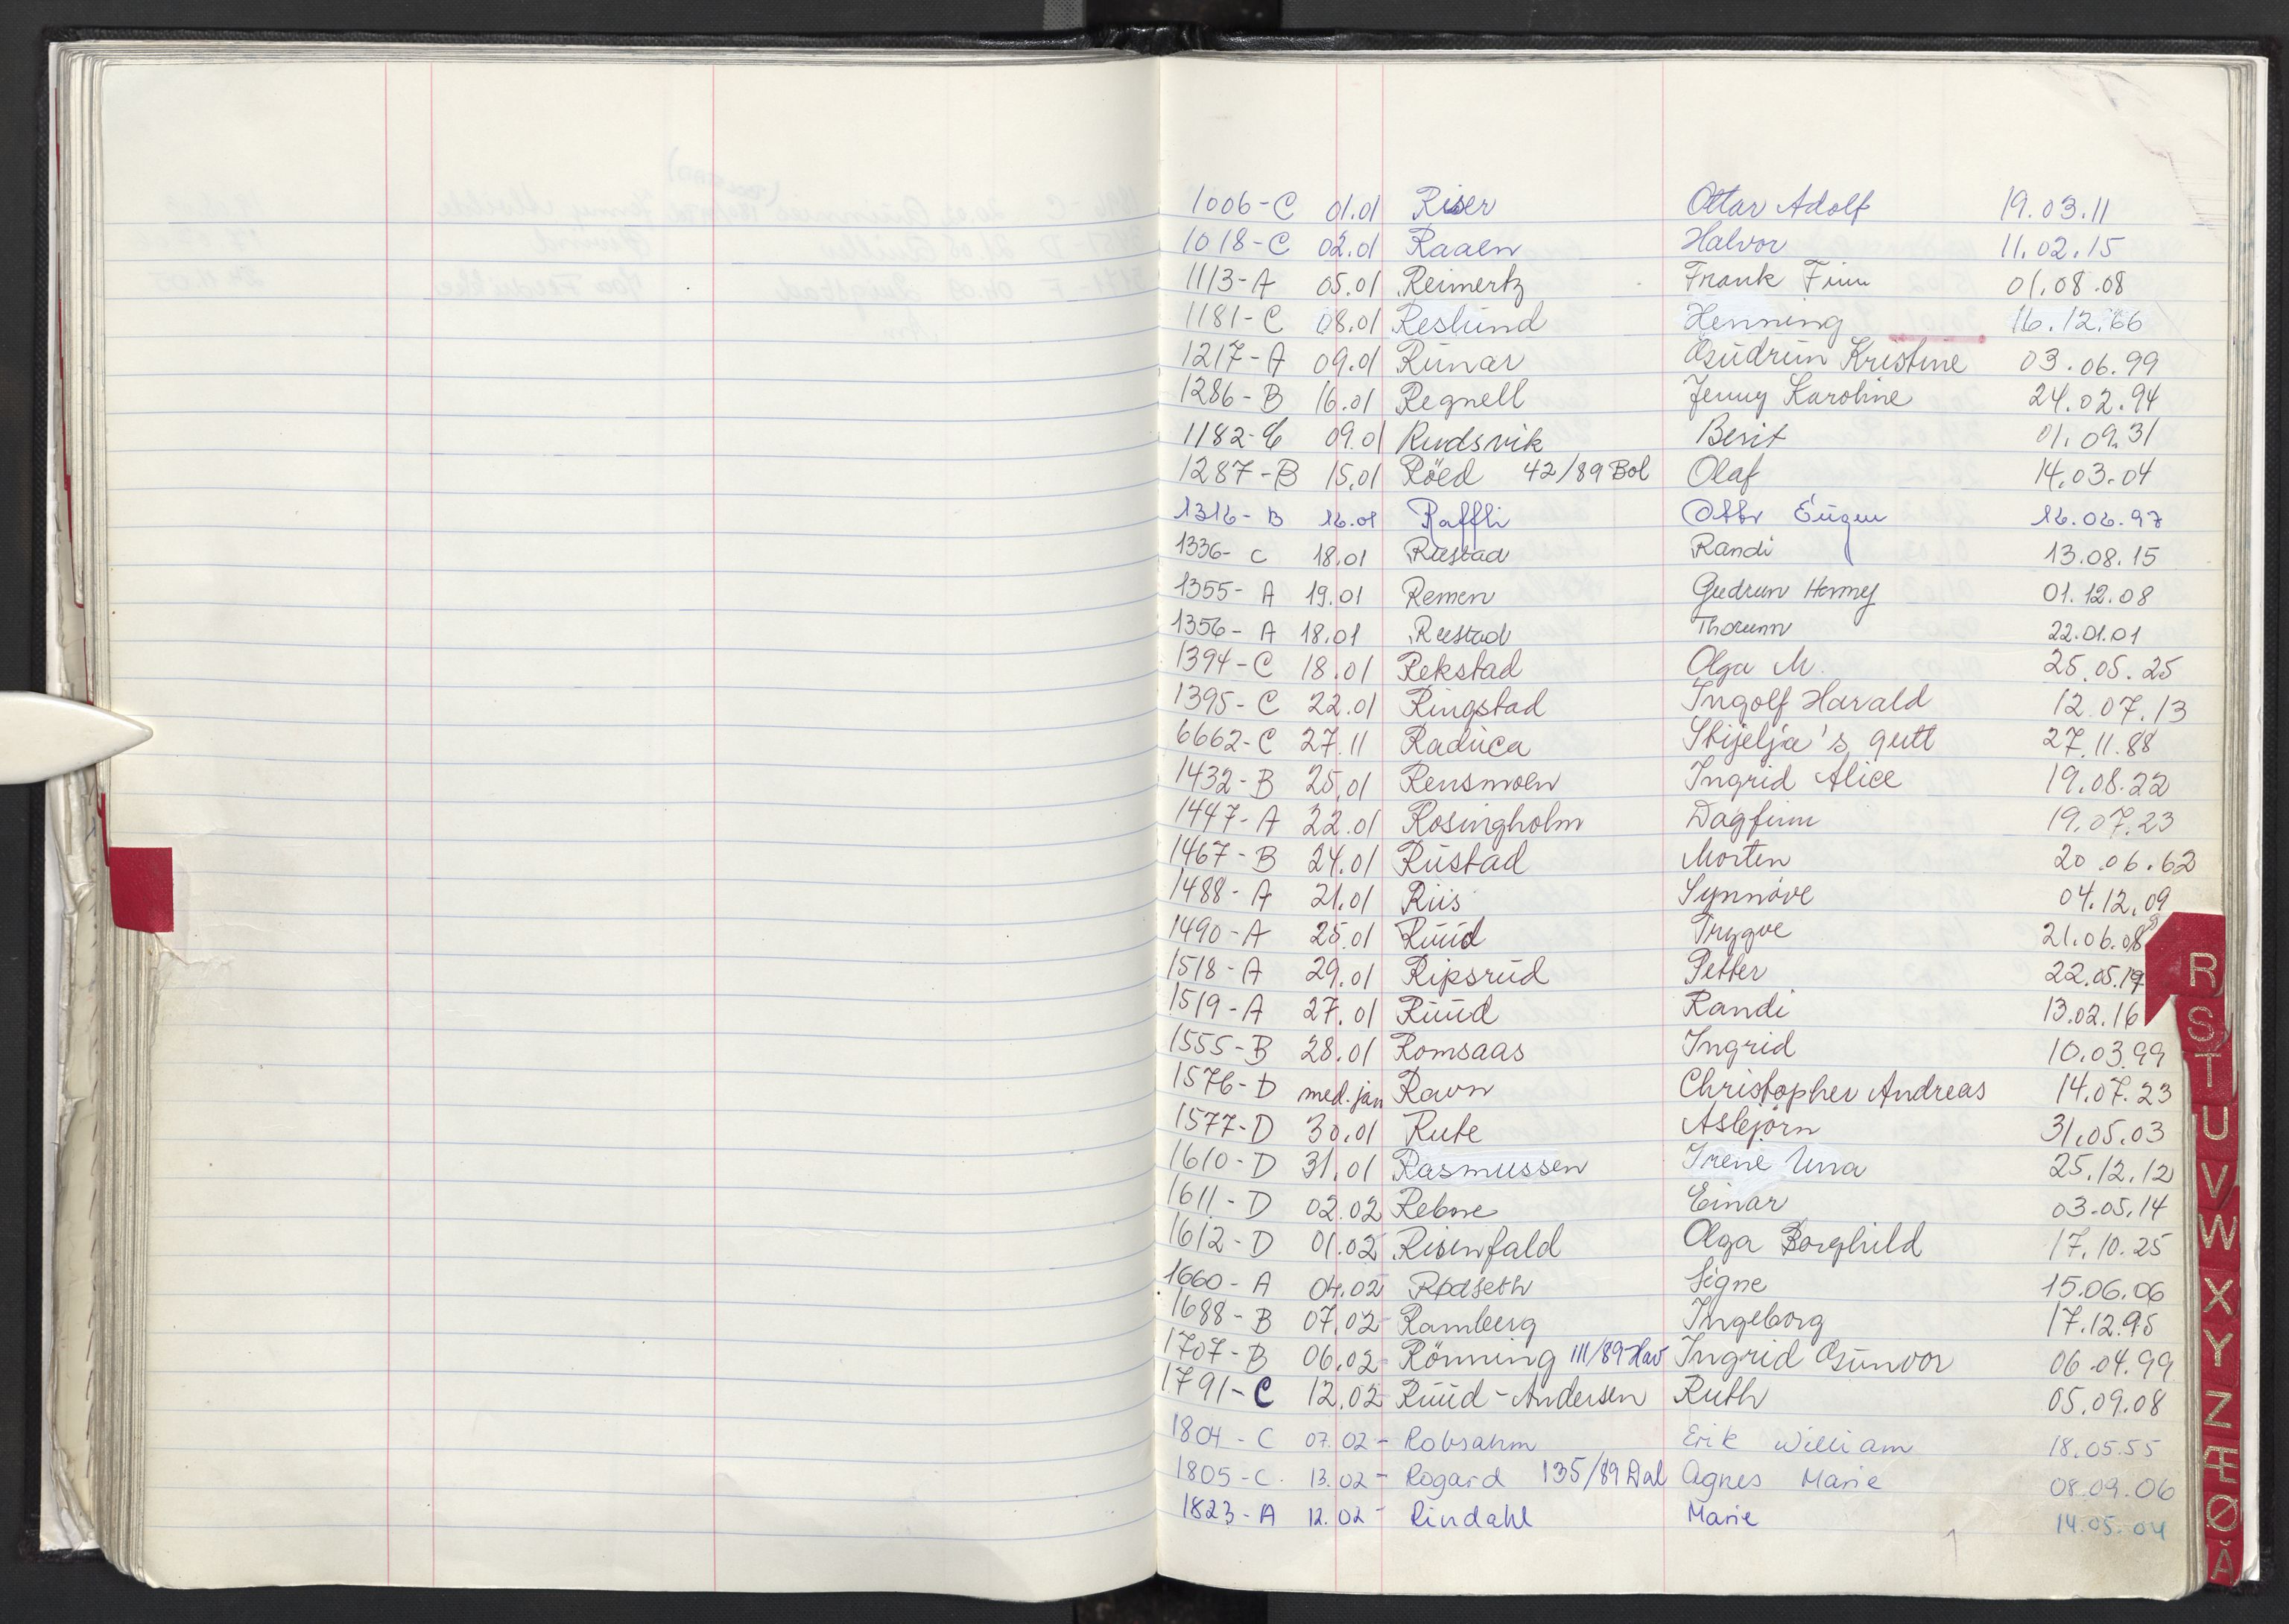 1006-C 01.01 Riser Ottar Adolf 19.03.11
1018-C 02.01 Raaen Halvor 11.02.15
1113-A 05.01 Reimertz Frank Finn 01.08.08
1181-C 08.01 Reslund Henning 16.12.66
1217-A 09.01 Runar Gudrun Kristine 03.06.99
1286-B 16.01 Regnell Jenny Karoline 24.02.94
1182-C 09.01 Rudsvik Berit 01.09.31
1287-B 15.01 Röed 42/89 Bol Olaf 14.03.04
1316-B 16.01 Raffli Otto Eugen 16.06.97
1336-C 18.01 Rustad Randi 13.08.15
1355-A 19.01 Remen Gudrun Henny 01.12.08
1356-A 18.01 Rustad Thorunn 22.01.01
1394-C 18.01 Rekstad Olga M. 25.05.25
1395-C 22.01 Ringstad Ingolf Harald 12.07.13
6662-C 27.11 Raduca Stijelja's gutt 27.11.88
1432-B 25.01 Rensmoen Ingrid Alice 19.08.22
1447-A 22.01 Rosingholm Dagfinn 19.07.23
1467-B 24.01 Rustad Morten 20.06.62
1488-A 21.01 Riis Synnöve 04.12.09
1490-A 25.01 Ruud Trygve 21.06.08
1518-A 29.01 Ripsrud Petter 22.05.19
1519-A 27.01 Ruud Randi 13.02.16
1555-B 28.01 Romsaas Ingrid 10.03.99
1576-D med.jan Ravn Christopher Andreas 14.07.23
1577-D 30.01 Rute Asbjörn 31.05.03
1610-D 31.01 Rasmussen Irene Una 25.12.12
1611-D 02.02 Rebne Einar 03.05.14
1612-D 01.02 Risenfald Olga Borghild 17.10.25
1660-A 04.02 Rødseth Signe 15.06.06
1688-B 07.02 Ramberg Ingeborg 17.12.95
1707-B 06.02 Rönning 111/89 Hav Ingrid Gunvor 06.04.99
1791-C 12.02 Ruud-Andersen Ruth 05.09.08
1804-C 07.02 - Robsahm Erik William 18.05.55
1805-C. 13.02 - Rogard 135/89 Dal Agnes Marie 08.09.06
1823-A 12.02 - Rindahl Marie 14.05.04
R
S
T
U
V
W
X
Y
Z
Æ
Ø
Å